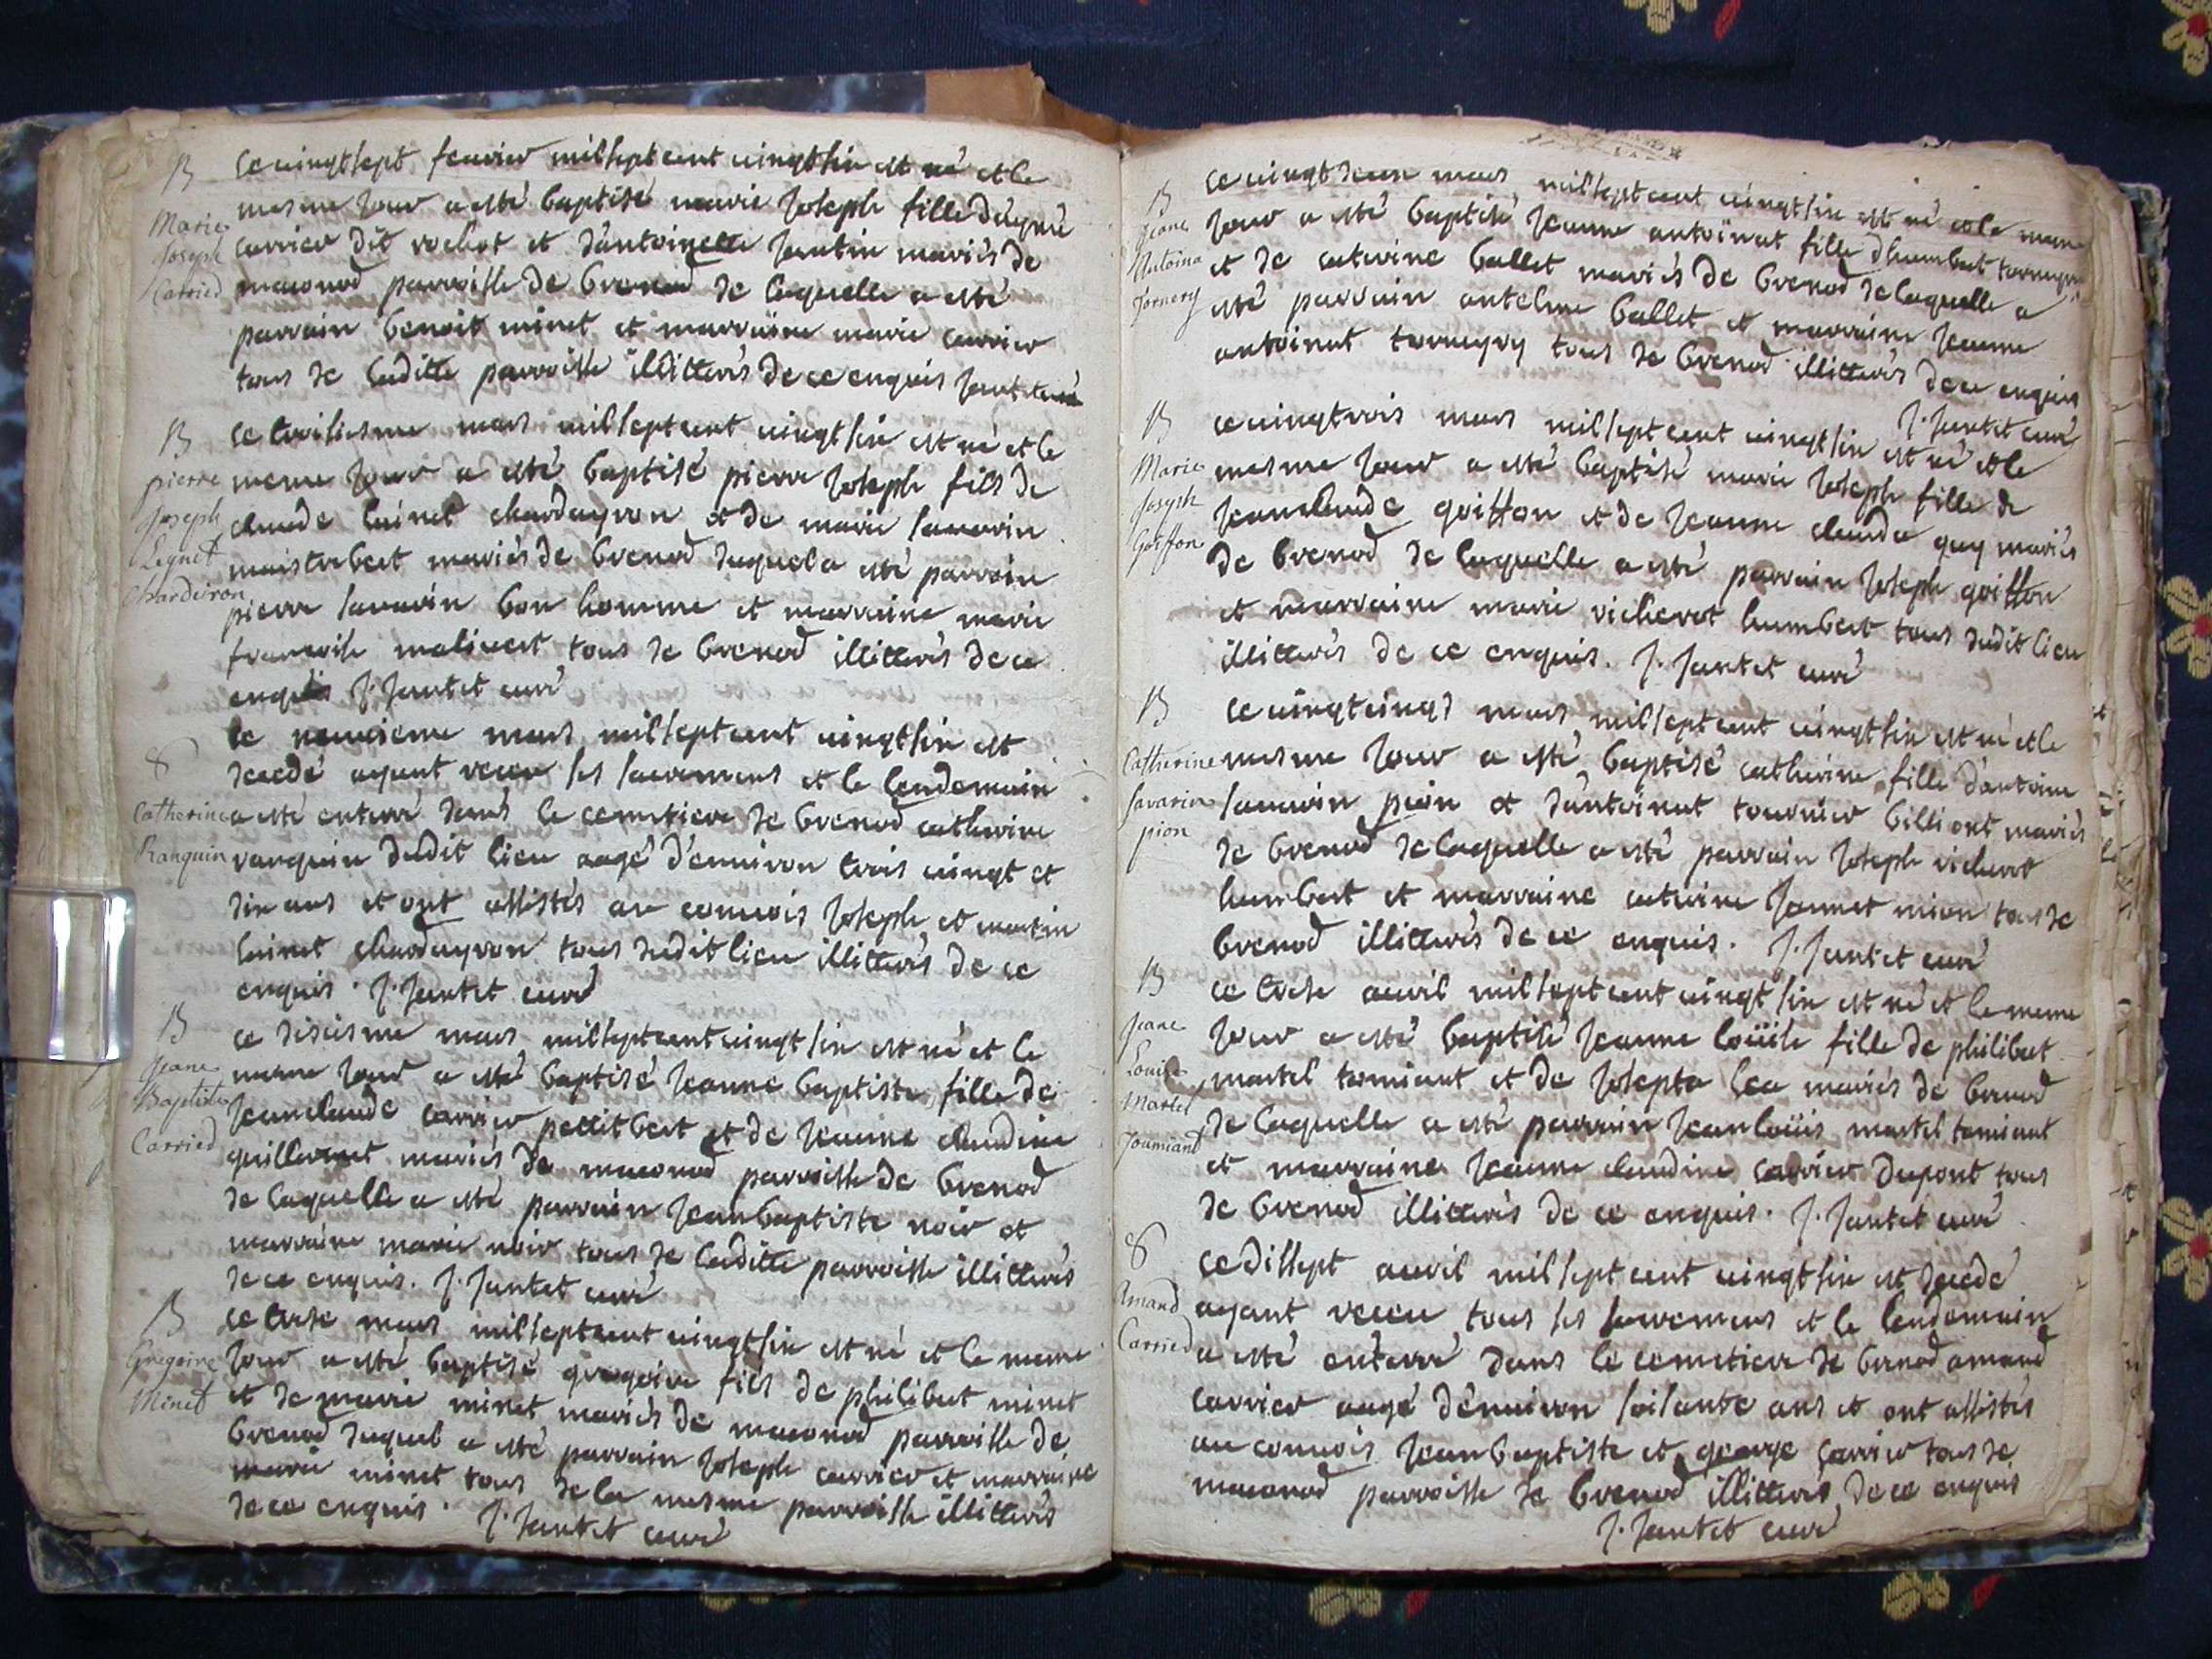 B
Marie
Joseph
Carried
ce vingtsept fevrier milsept cent vingtsix est né et le
mesme jour a esté baptisé marie joseph fille
carrier dit rochet et d'antoinette jantin mariés de
maconod parroisse de brenod de laquelle a esté
parrain benoit minet et marraine marie carrier
tous de laditte parroisse illitterés de ce enquis jantet curé
B
pierre
Joseph
Leynet
Chardeiron
ce troisiesme mars milsept cent vingtsix est né et le
meme jour a esté baptisé pierre joseph fils de
claude lainet chardayron et de marie savarin
maistrobert mariés de brenod duquel a esté parrain
pierre savarin bon homme et marraine marie
francoise malivert tous de brenod illitterés de ce
enquis J. Jantet curé
S
Catherine
Ranquin
le neuvieme mars milsept cent vingtsix est
decedé ayant receu ses sacremens et le lendemain
a esté enterré dans le cemetiere de brenod catherine
ranquin dudit lieu aagé d'environ trois vingt et
dix ans et ont assistés au convois joseph et martin
lainet chardayron tous dudit lieu illitterés de ce
enquis. J. Jantet curé
B
Jeane
Baptiste
Carried
ce disiesme mars milsept cent vingt six est né et le
mesme jour a esté baptisé jeanne baptiste fille de
jeanclaude carrier petitbert et de jeanne claudine
guillermet mariés de maconod parroisse de brenod
de laquelle a esté parrain jean baptiste noir et
marraine marie noir tous de laditte parroisse illitterés
de ce enquis. J. Jantet curé
B
Gregoire
Minet
ce trese mars milsept cent vingtsix est né et le meme
jour a esté baptisé gregoire fils de philibert minet
et de marie minet mariés de maconod parroisse de
brenod duquel a esté parrain joseph carrier et marraine
marie minet tous de la mesme parroisse illitterés
de ce enquis. J. Jantet curé
B
Jeane
Antoina
Tornery
ce vingt mars milsept cent vingtsix est né et le meme
jour a esté baptisé jeanne antoinat fille d'humbert
et de caterine ballet mariés de brenod de laquelle a
esté parrain antelme ballet et marraine jeanne
antoinat torneyry tous de brenod illitterés de ce enquis
J. Jantet curé
B
Marie
Joseph
Goiffon
ce vingtrois mars milsept cent vingtsix est né et le
mesme jour a esté baptisé marie joseph fille de
jeanclaude goiffon et de jeanne claude guy mariés
de brenod de laquelle a esté parrain joseph goiffon
et marraine marie richerot humbert tous dudit lieu
illitterés de ce enquis. J. Jantet curé
B
Catherine
Savarin
pion
ce vingtcinqs mars milsept cent vingtsix est né et le
mesme jour a esté baptisé catherine fille d'antoine
savarin pion et d'antoinat tournier billiont mariés
de brenod de laquelle a esté parrain joseph richerot
humbert et marraine caterine jannet mion tous de
brenod illitterés de ce enquis. J. Jantet curé
B
Jeane
Louise
Martel
Toumiant
ce trese avril milsept cent vingt six est né et le meme
jour a esté baptisé jeanne loüise fille de philibert
martel tomiant et de josepta lea mariés de brenod
de laquelle a esté parrain jean loüis martel tomiant
et marraine jeanne claudine carrier dupont tous
de brenod illitterés de ce enquis. J. Jantet curé
S
Amand
Carried
ce disept avril milsept cent vingtsix est decedé
ayant receu tous ses sacremens et le lendemain
a esté enterré dans le cemetiere de brenod amand
carrier aagé d'environ soisante ans et ont assistés
au convois jean baptiste et george carrier tous de
maconod parroisse de brenod illitterés de ce enquis
J. Jantet curé